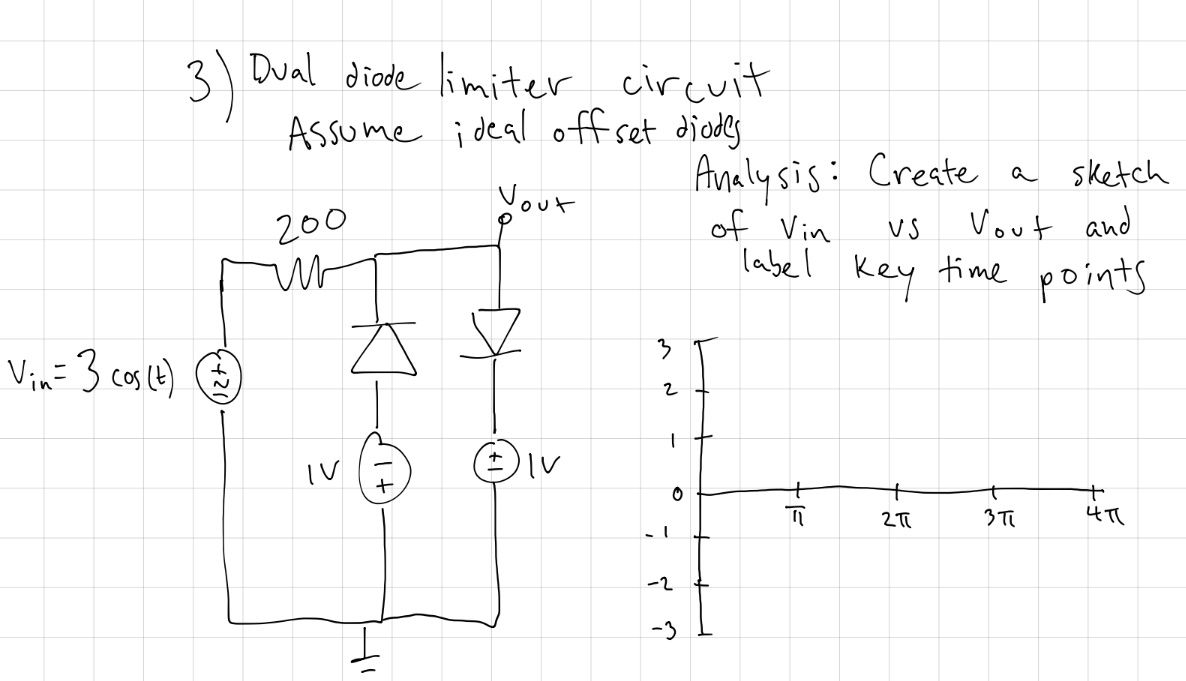 3) Dual diode limiter circuit
Assume ideal offset diodes
Analysis: Create a sketch
of Vin vs Vout and
label key time points
Vout
200
Vin = 3 cos(t)
+
~
-
1V
-
+
+
-
1V
3
2
1
0
-1
-2
-3
π 2π 3π 4π